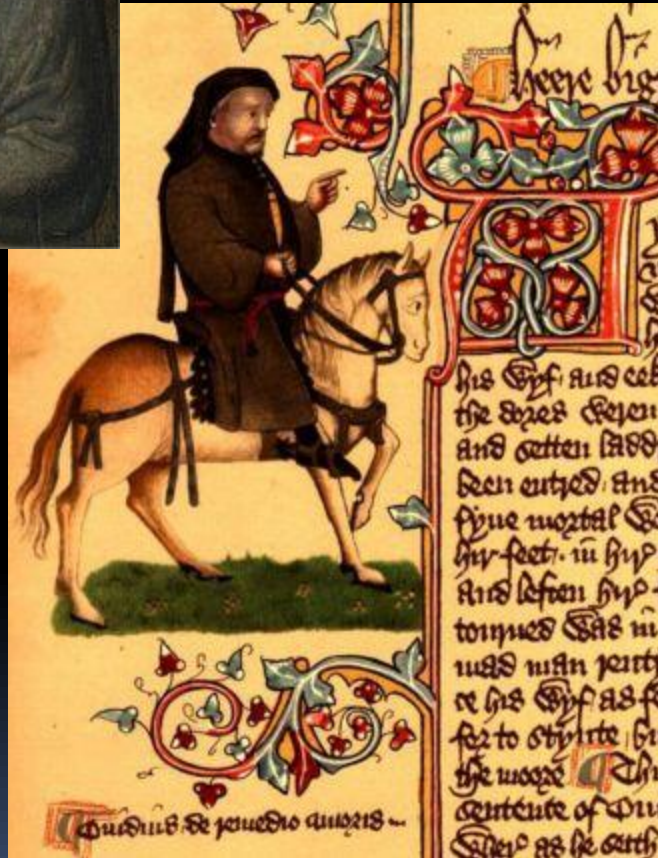 Heere
his wyf and eek
the dores weren
and setten ladd
been entred and
fyue mortal wo
hir feet in hir
and leften hir
tourned was in
mad man rent
ce his wyf as f
for to stynte
the moore Th
sentence of Oui
wher as he seith
Ouidius de remedio amoris